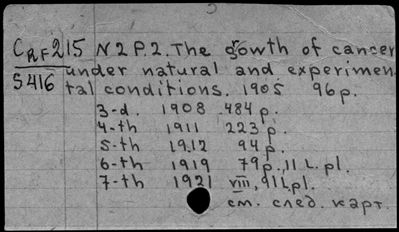 CRF215 N2P.2. The growth of cancer
5416 under natural and experimen
tal conditions. 1905 96p.
3-d. 1908 484p.
4-th 1911 223p.
5-th 1912 94p.
6-th 1919 79p., 11 L. pl.
7-th 1921 VIII, 91 L pl.
см. след. карт.